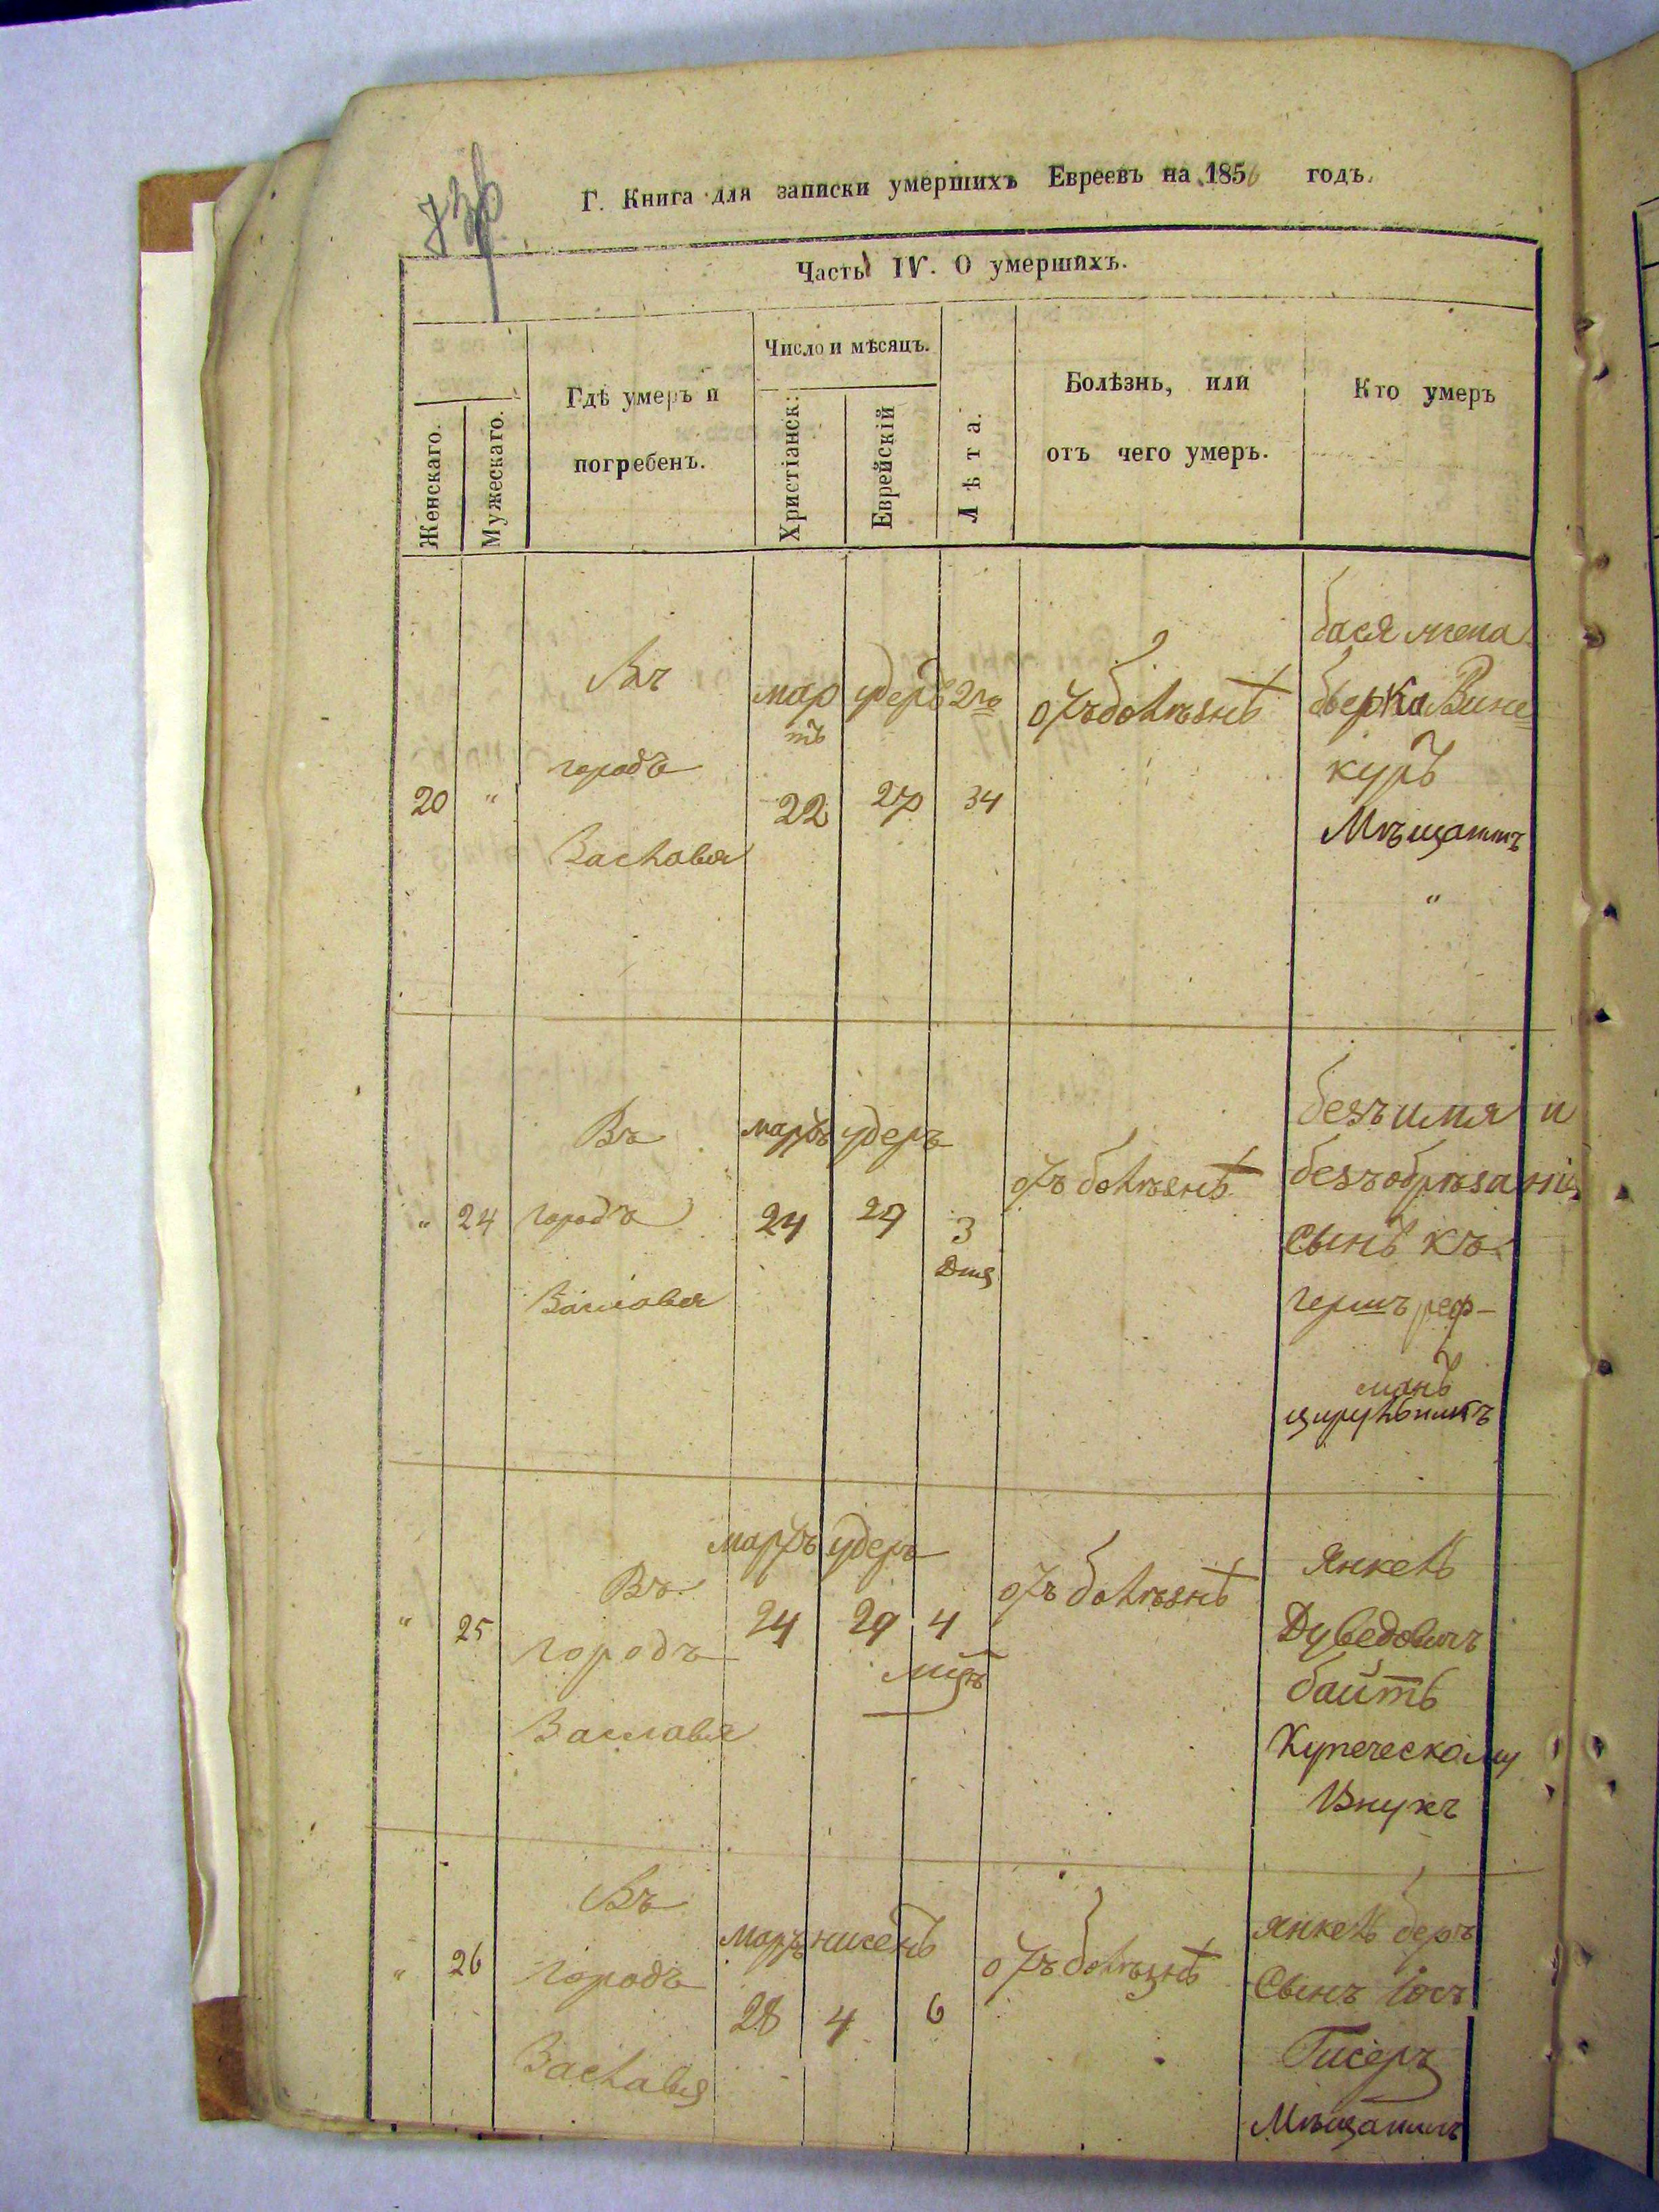 Г. Книга для записки умершихъ Евреевъ на 1856 годъ.
Часть IV. О умершихъ.
Женскаго.
Мужескаго.
Гдѣ умеръ и
погребенъ.
Число и мѣсяцъ.
Христіанск:
Еврейскій
Лѣта.
Болѣзнь, или
отъ чего умеръ.
Кто умеръ
20
"
Въ
городъ
Заславья
мар
тъ
22
адеръ 2го
27
34
отъ болѣзнѣ
бася жена
берка Вине
куръ
Мѣщанинъ
"
"
24
Въ
городъ
Заславья
мартъ
24
адеръ
29
3
Дня
отъ болѣзнѣ
безъ имя и
безъ обрѣзаніи
Сынъ къ
гершъ
манъ
цирульникъ
"
25
Въ
городъ
Заславья
мартъ
24
адеръ
29
4
отъ болѣзнѣ
Янкель
Дуведовичъ
Купеческому
Внукъ
"
26
Въ
городъ
Заславья
мартъ
28
нисенъ
4
6
отъ болѣзнѣ
янкель беръ
Сынъ Іось
Гисеръ
Мѣщанинъ